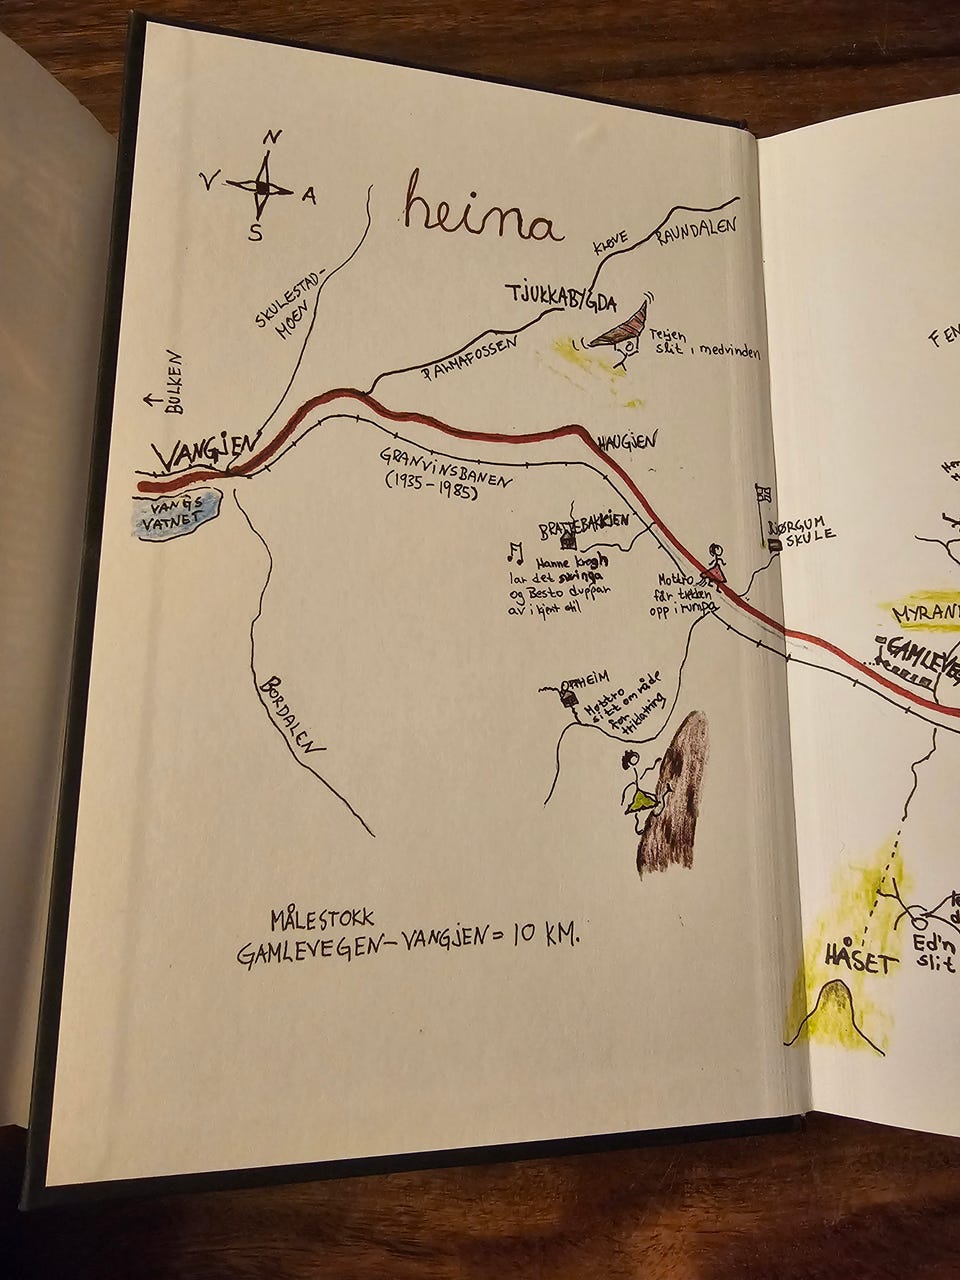 N
V A
S
heina
SKULESTAD-
MOEN
KLØVE RAUNDALEN
TJUKKABYGDA
Terjen
slit i medvinden
PALMAFOSSEN
↑
BULKEN
VANGJEN
VANGS
VATNET
GRANVINSBANEN
(1935-1985)
HAUGJEN
BRATTEBAKKJEN
Hanne Krogh
lar det svinga
og Besto duppar
av i kjent stil
Mottro
får trekken
opp i rumpo
BJØRGUM
SKULE
MYRAN
GAMLEVEG
Mottro
sitt område
for
triklatring
BORDALEN
MÅLESTOKK
GAMLEVEGEN-VANGJEN = 10 KM.
HÅSET
Ed'n
slit
FEN